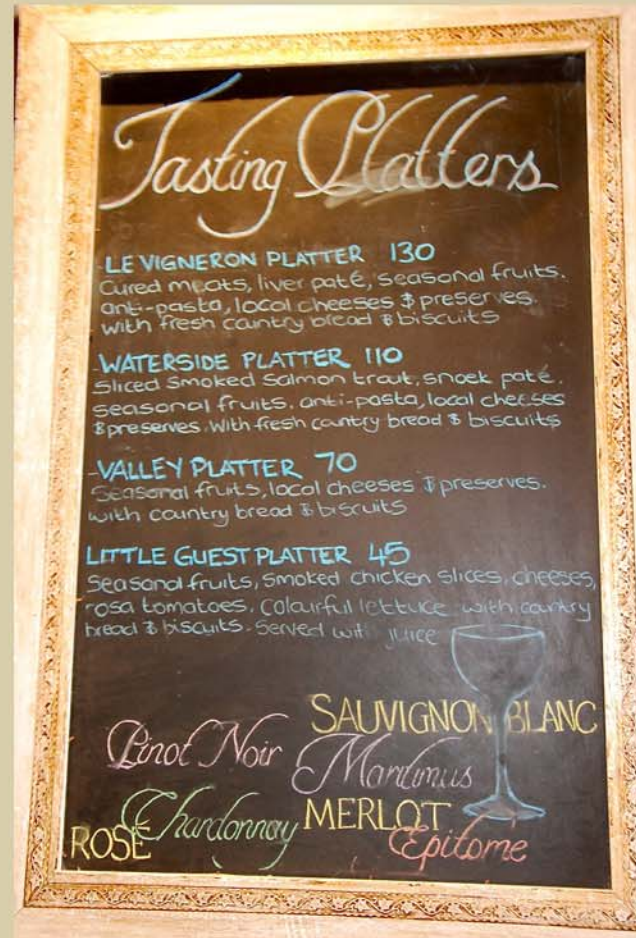 Tasting Platters
-LE VIGNERON PLATTER 130
Cured meats, liver paté, seasonal fruits.
anti-pasta, local cheeses & preserves.
with fresh country bread & biscuits
-WATERSIDE PLATTER 110
Sliced smoked salmon trout, snoek paté.
seasonal fruits. anti-pasta, local cheeses
& preserves. With fresh country bread & biscuits
-VALLEY PLATTER 70
Seasonal fruits, local cheeses & preserves.
with country bread & biscuits
LITTLE GUEST PLATTER 45
Seasonal fruits, smoked chicken slices, cheeses,
rosa tomatoes. colourful lettuce with country
bread & biscuits. Served with juice
SAUVIGNON BLANC
Pinot Noir
Maritimus
Chardonnay
MERLOT
ROSÉ
Epitome